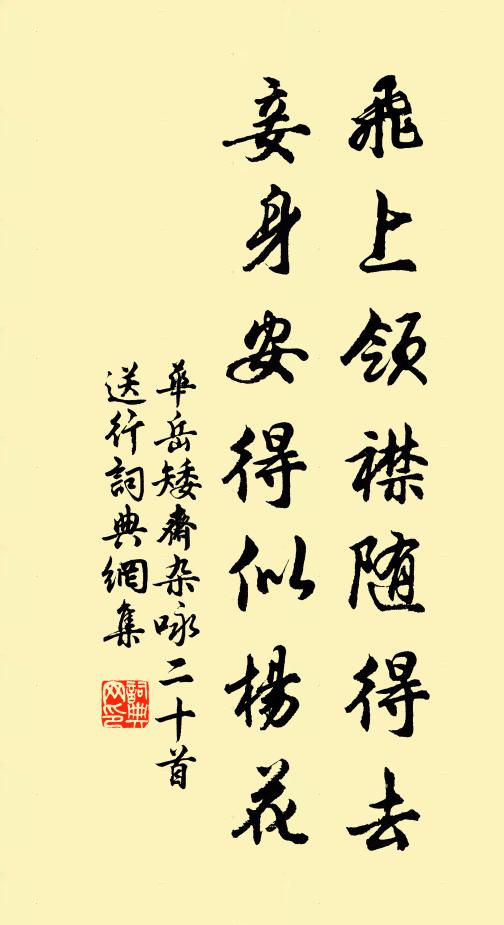 飛上領襟随得去
妾身安得似楊花
華岳矮齋杂咏二十首
送行詞典網集
詞典网印